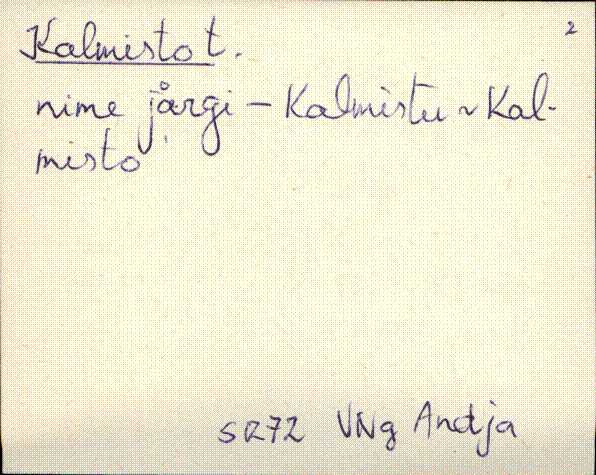 2
Kalmisto t.
nime järgi – Kalmistu ~ Kal-
misto
SR72 VNg Andja